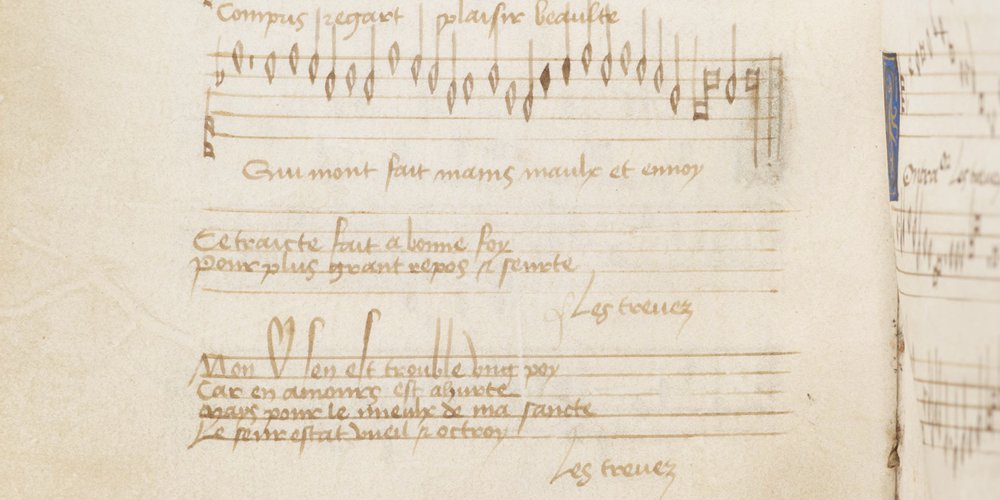 Compris regart plaisir beaulte
Qui mont fait mains maulx et ennoy
Ce traicte fait a bonne foy
Pour plus grant repos & seurte
Les treuez
Mon vloeir est trouble ung poy
Car en amours est ahurte
Mays pour le mieulx de ma sancte
Le seur estat vueil & octroy
Les treuez
Contra